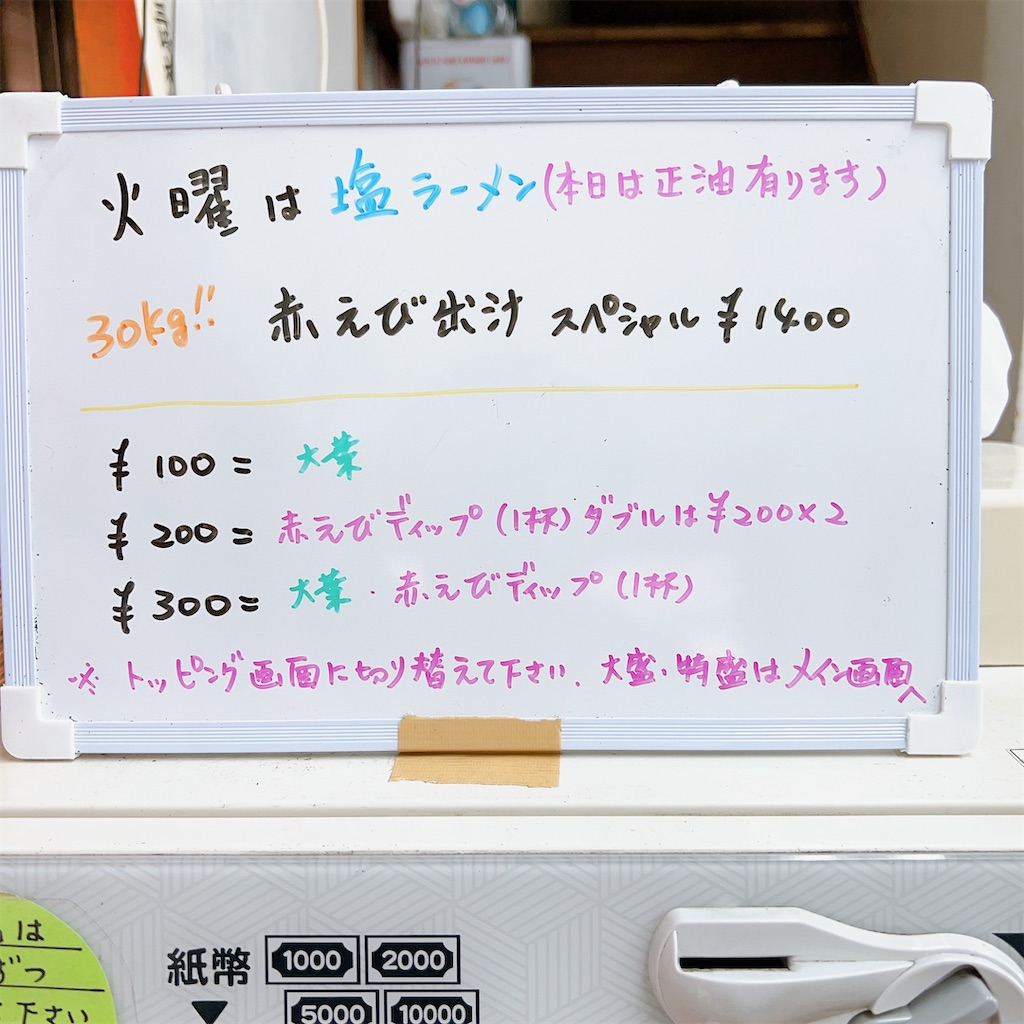 火曜は塩ラーメン(本日は正油有ります)
30kg!! 赤えび出汁 スペシャル ¥1400
¥100= 大葉
¥200= 赤えびディップ(1杯)ダブルは¥200×2
¥300= 大葉・赤えびディップ(1杯)
※トッピング画面に切り替えて下さい、大盛・特盛はメイン画面へ
は
ずつ
下さい
紙幣 1000 2000
▼ 5000 10000